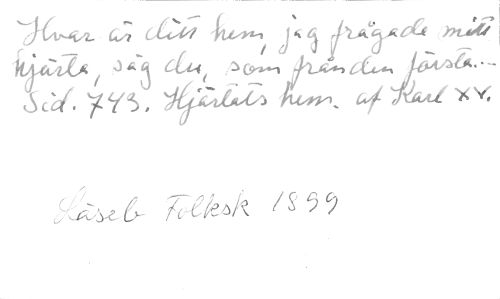 Hvar är ditt hem, jag frågade mitt
hjärta, säg du, som från den första...
Sid. 743. Hjärtats hem. af Karl XV.
Läseb Folksk 1899